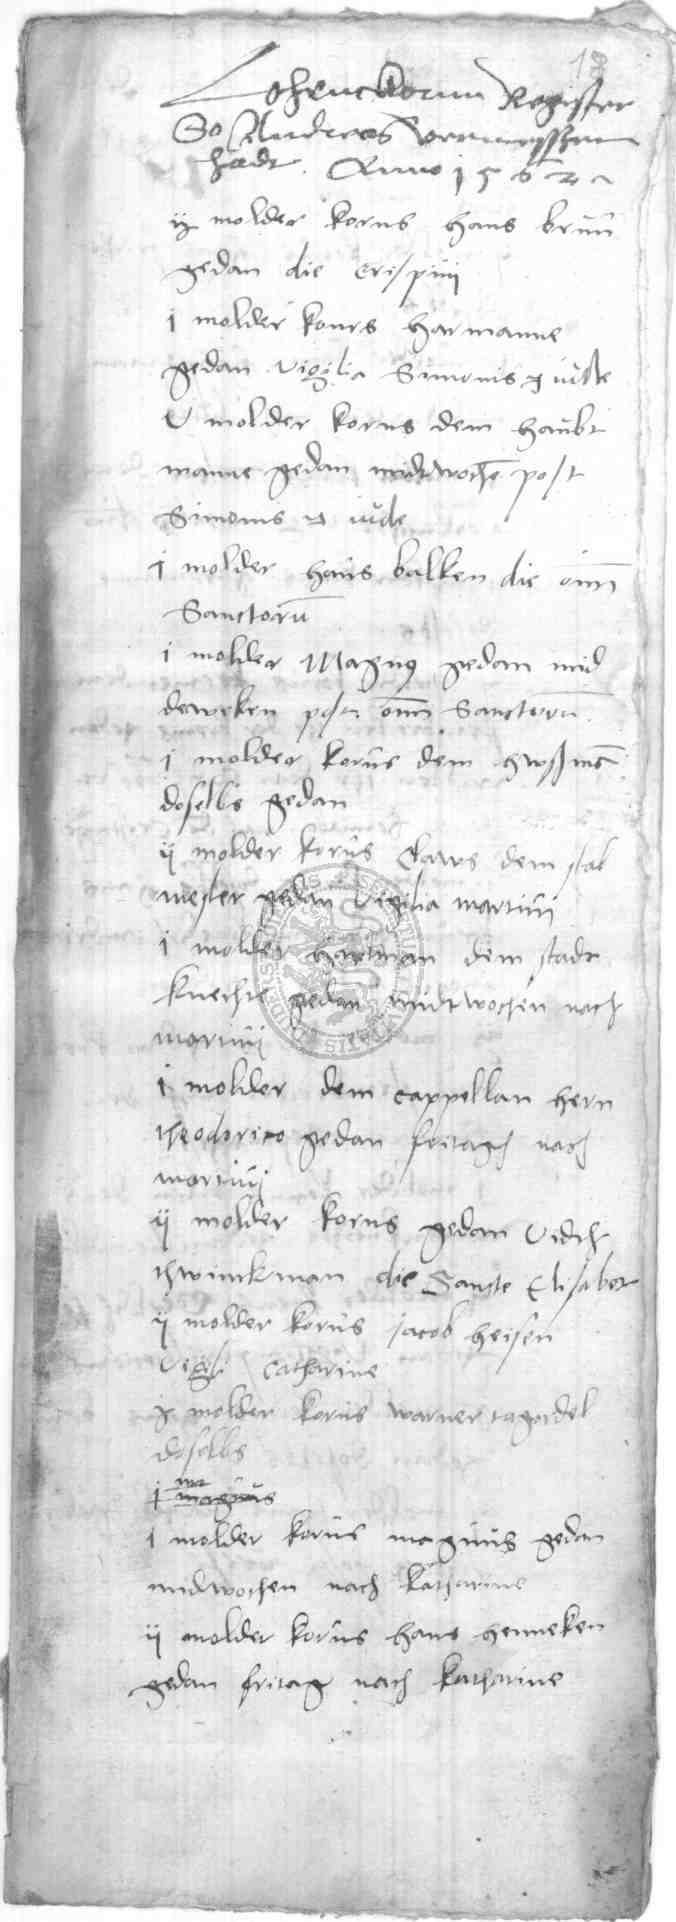 18
Lohenckorun Register
So Andreas vermessen
hadt. Anno 1562
ij molder korns hans brun
gedan die Crispini
j molder korns harmanne
gedan vigilia Simonis et iude
V molder korns dem haubt
manne gedan midtwochen post
Simonis et iude
j molder hans balken die omn
Sanctoru
j molder Magnus gedan mid
deweken post omn Sanctoru
j molder korns dem
doselbs gedan
ij molder korns Claws dem stal
mester gedan vigilia martini
j molder hartman dem stadt
knechte gedan midtwochen nach
martini
j molder dem cappellan hern
theodorico gedan fritagh nach
martini
ij molder korns gedan
thwinckman die Sancte Elisabet
ij molder korns jacob heisen
vigili Catharine
j molder korns warner tagordel
doselbs
j magnus
j molder korns magnus gedan
midwochen nach katharine
ij molder korns hans henneken
gedan fritag nach katharine